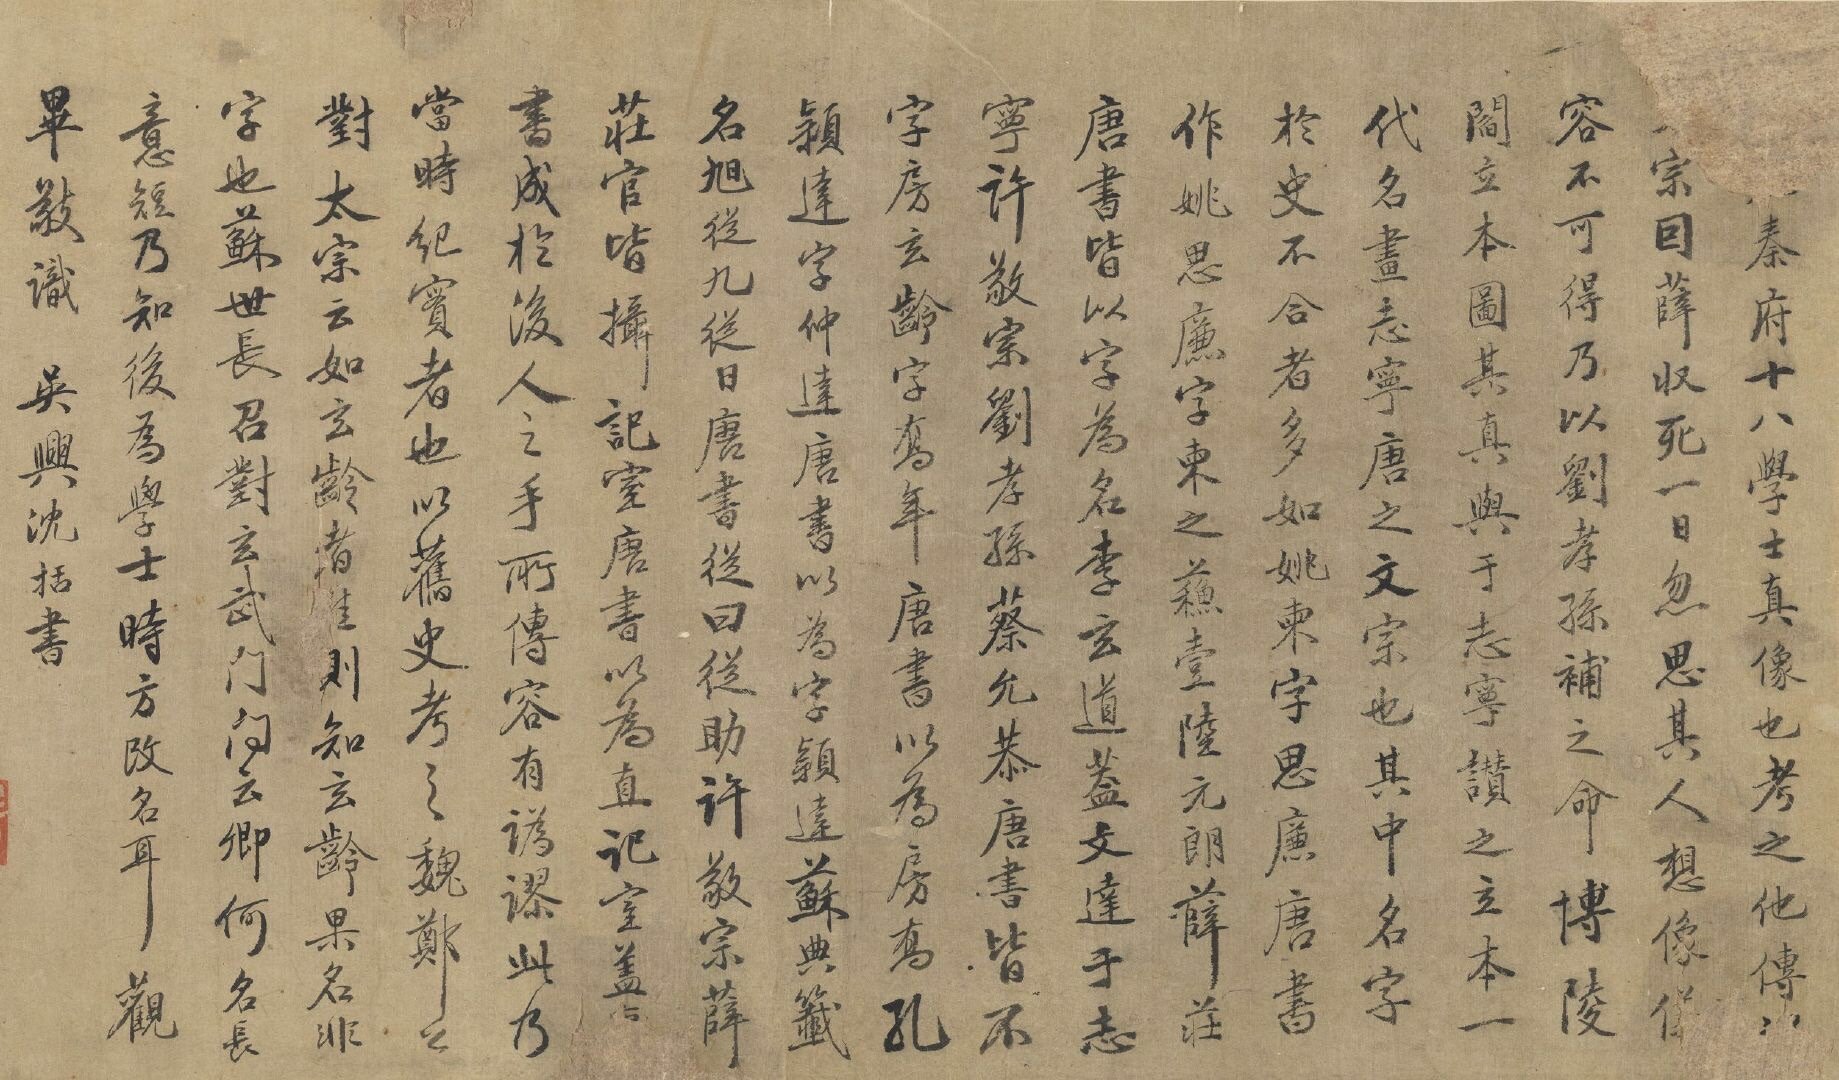 秦府十八學士真像也考之他傳
宗因薛収死一日忽思其人想像儀
容不可得乃以劉孝孫補之命博陵
閻立本圖其真與于志寧讃之立本一
代名畫志寧唐之文宗也其中名字
於史不合者多如姚柬字思廉唐書
作姚思廉字柬之蘓壹陸元朗薛莊
唐書皆以字為名李玄道葢文達于志
寧許敬宗劉孝孫蔡允恭唐書皆不
字房玄齡字喬年唐書以為房喬孔
頴達字仲達唐書以為字頴達蘇典籤
名旭從九從日唐書從曰從助許敬宗薛
莊官皆攝記室唐書以為直記室葢
書成於後人之手所傳容有譌謬此乃
當時紀實者也以舊史考之魏鄭公
對太宗云如玄齡者則知玄齡果名非
字也蘇世長召對玄武門問云卿何名長
意短乃知後為學士時方改名耳觀
畢敬識 吳興沈括書